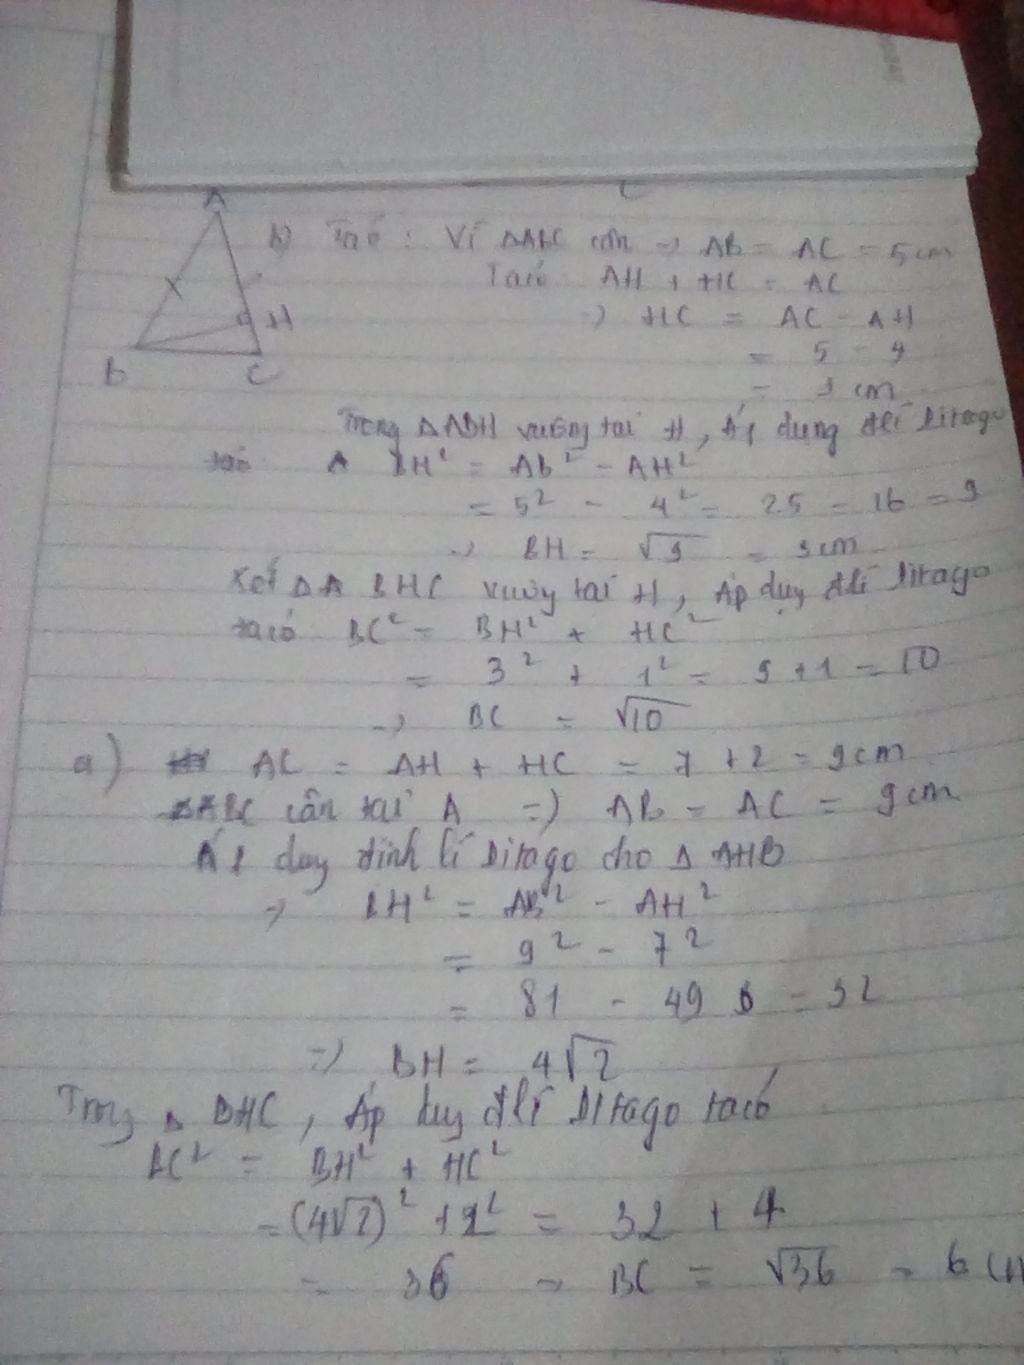 A
H
B
C
b) Ta có : Vì ΔABC cân => AB = AC = 5 cm
Ta có AH + HC = AC
=> HC = AC - AH
= 5 - 4
= 1 cm
Trong ΔABH vuông tại H, Áp dụng đlí Pitago
ta có BH² = AB² - AH²
= 5² - 4² = 25 - 16 = 9
=> BH = √9 = 3cm
Xét Δ BHC vuông tại H, Áp dụng đlí Pitago
ta có BC² = BH² + HC²
= 3² + 1² = 9 + 1 = 10
=> BC = √10
a) AC = AH + HC = 7 + 2 = 9 cm
ΔABC cân tại A => AB = AC = 9 cm
Áp dụng định lí Pitago cho Δ AHB
=> BH² = AB² - AH²
= 9² - 7²
= 81 - 49 = 32
=> BH = 4√2
Trong Δ BHC, Áp dụng đlí Pitago ta có
BC² = BH² + HC²
= (4√2)² + 2² = 32 + 4
= 36 => BC = √36 = 6 cm